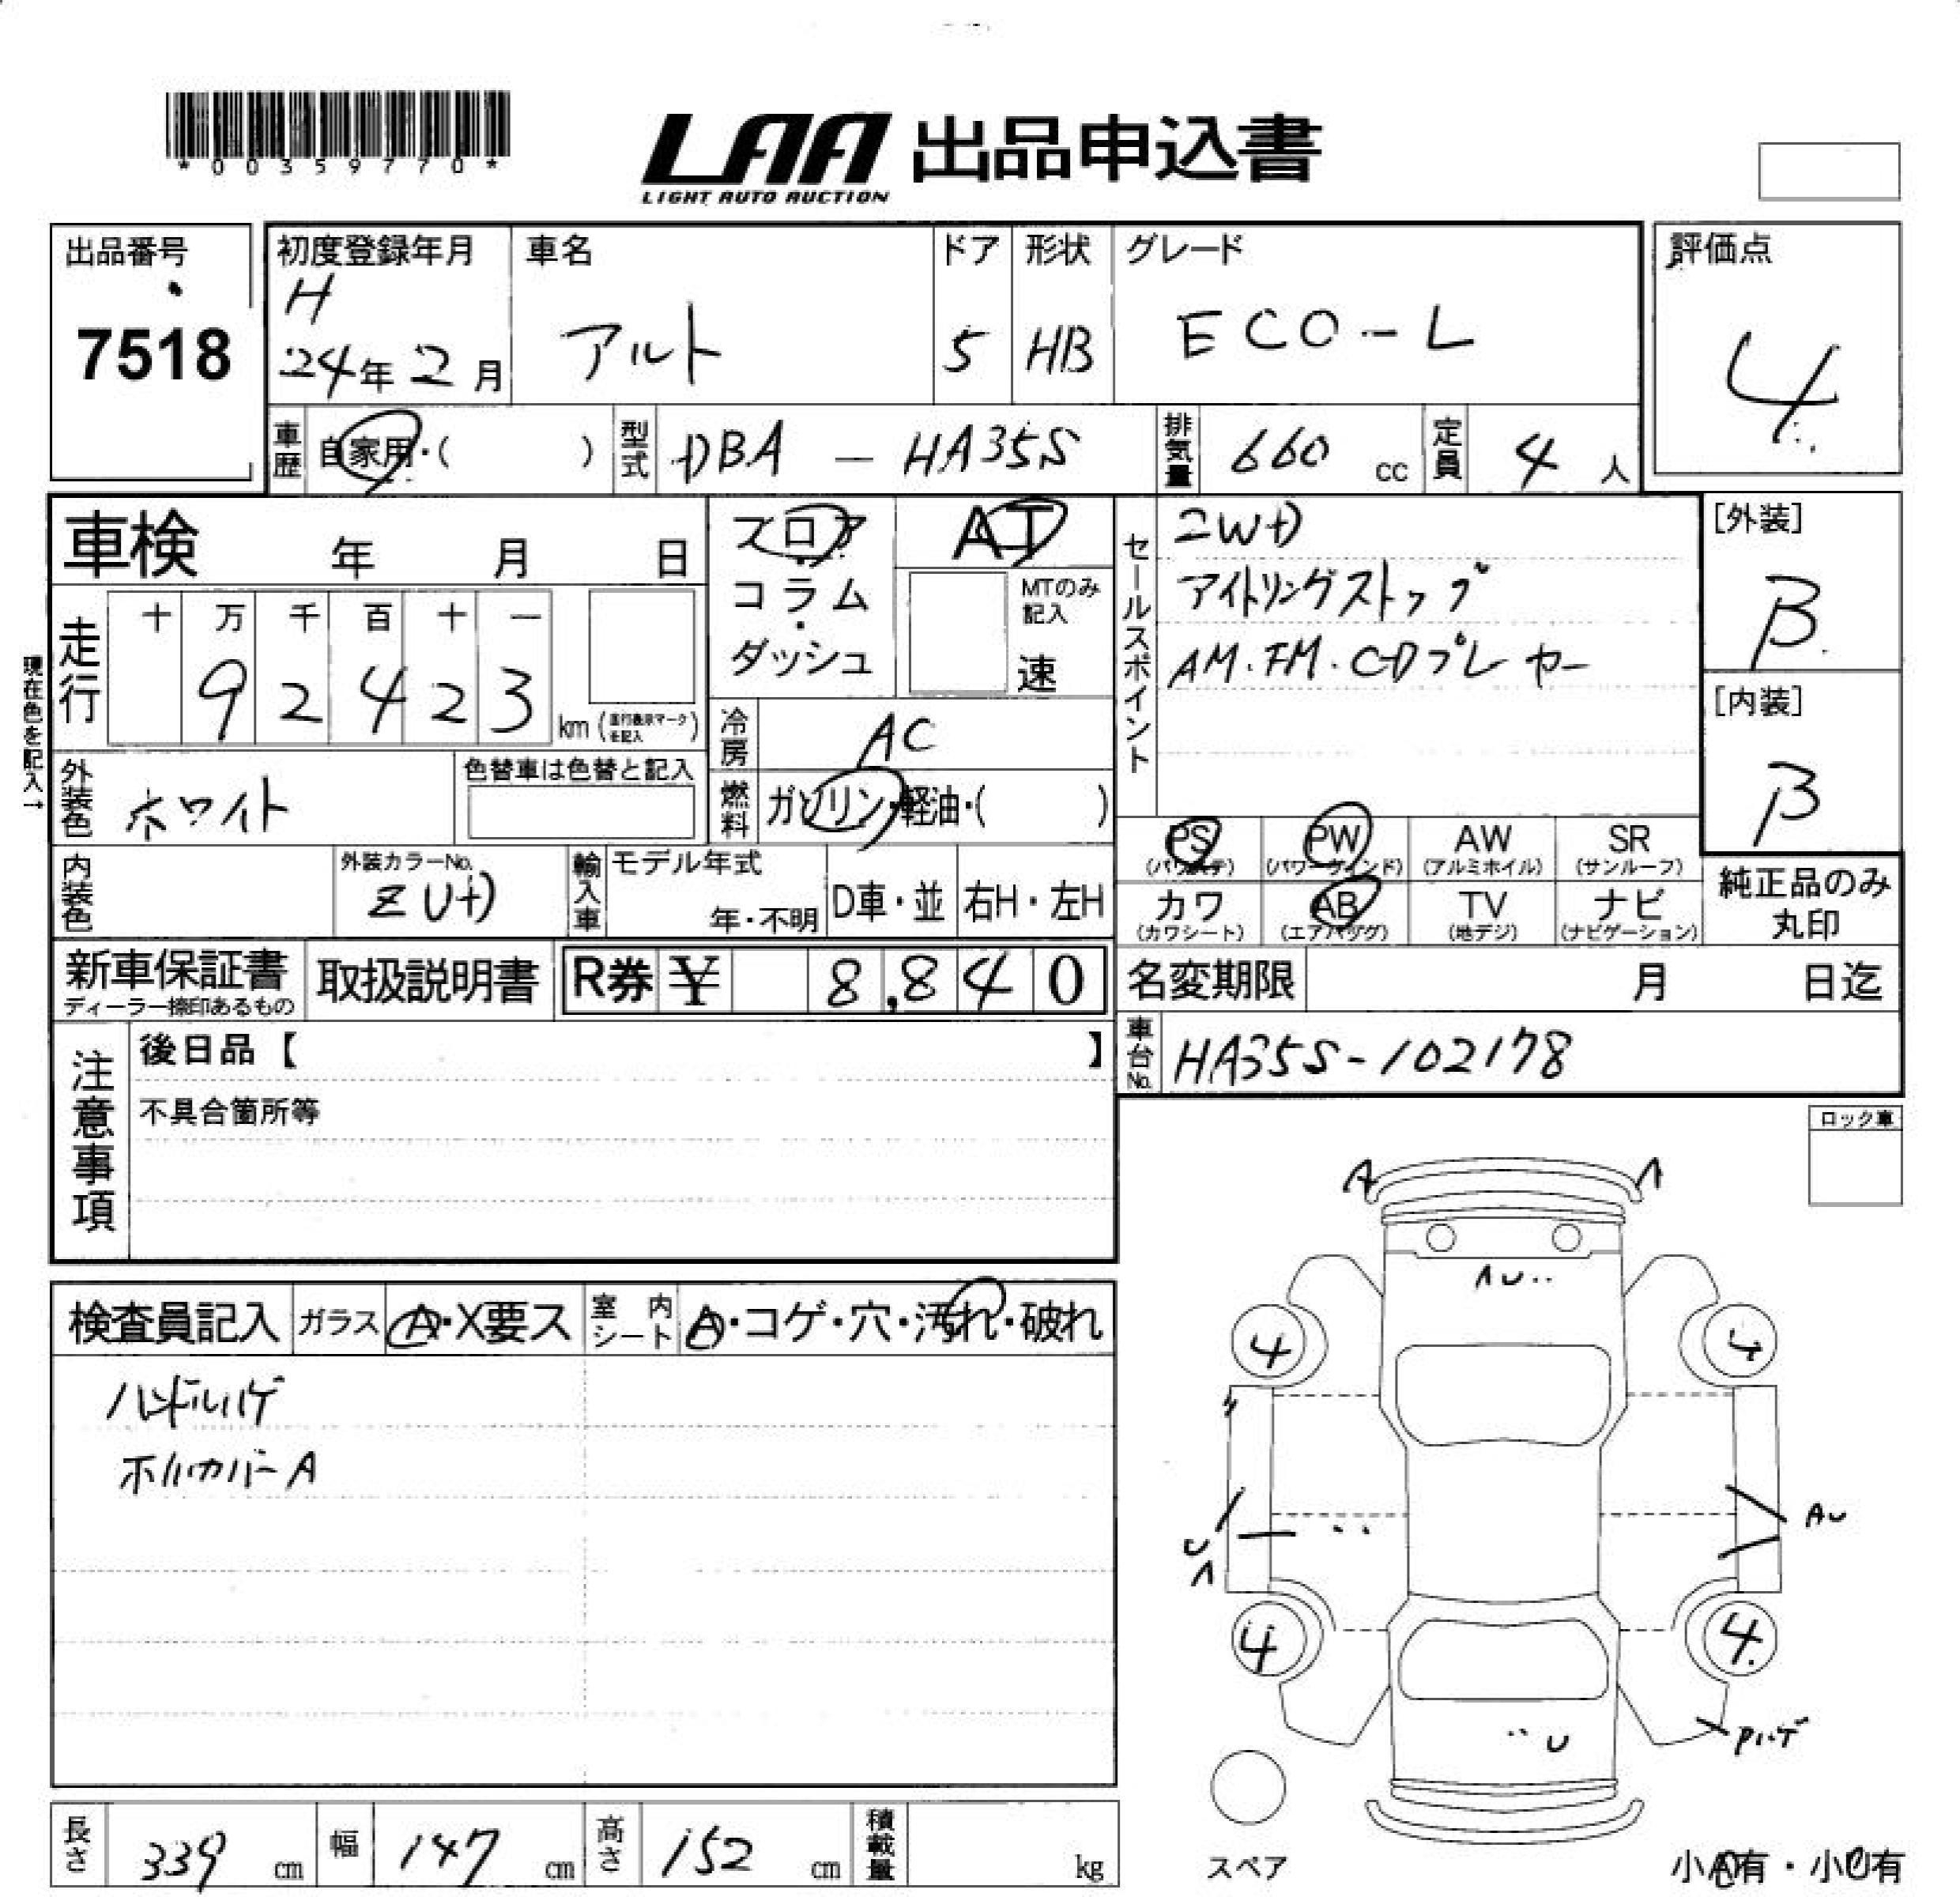 *00359770*
LAA 出品申込書
LIGHT AUTO AUCTION
出品番号
7518
初度登録年月
H
24年 2月
車名
アルト
ドア
5
形状
HB
グレード
ECO-L
評価点
4
車歴 自家用・( )
型式 DBA - HA35S
排気量 660 cc
定員 4 人
車検 年 月 日
走行
十 万 千 百 十 一
9 2 4 2 3 km
現在色を記入→
フロア
コラム
ダッシュ
AT
MTのみ記入
速
冷房 AC
燃料 ガソリン・軽油・( )
セールスポイント
2WD
アイドリングストップ
AM・FM・CDプレーヤー
[外装]
B
[内装]
B
外装色 ホワイト
色替車は色替と記入
内装色
外装カラーNo.
ZUD
輸入車 モデル年式
年・不明
D車・並
右H・左H
PS (パワステ)
PW (パワーウィンド)
AW (アルミホイル)
SR (サンルーフ)
カワ (カワシート)
AB (エアバッグ)
TV (地デジ)
ナビ (ナビゲーション)
純正品のみ
丸印
新車保証書
ディーラー捺印あるもの
取扱説明書
R券 ¥ 8,840
名変期限 月 日迄
車台No. HA35S-102178
注意事項
後日品【 】
不具合箇所等
ロック車
検査員記入
ガラス A・X要ス
室内シート A・コゲ・穴・汚れ・破れ
ハンドルハゲ
ホイルカバーA
A
A
AU
4
4
U
A
AU
4
4
Pハゲ
U
スペア
小A有・小U有
長さ 339 cm
幅 147 cm
高さ 152 cm
積載量 kg